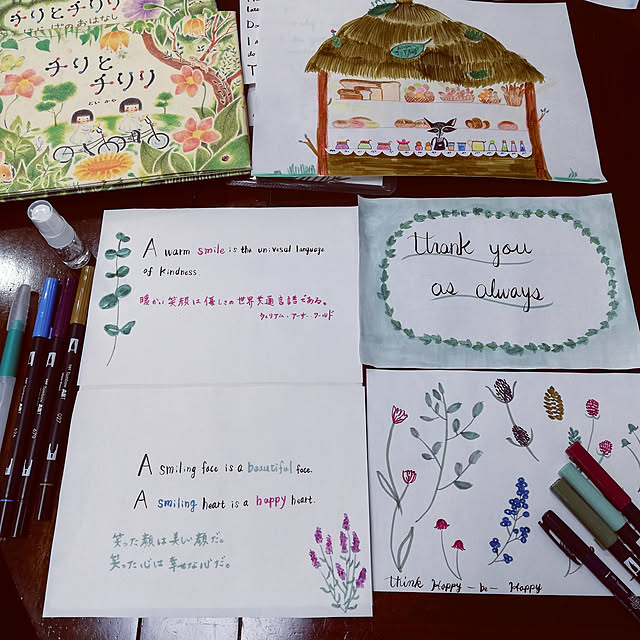 チリとチリリ
のおはなし
チリと
チリリ
どい かや
A warm smile is the univesal language
of kindness.
暖かい笑顔は優しさの世界共通言語である。
ウィリアム・アーサー・ワールド
Thank you
as always
A smiling face is a beautiful face.
A smiling heart is a happy heart.
笑った顔は美しい顔だ。
笑った心は幸せな心だ。
think Happy - be - Happy